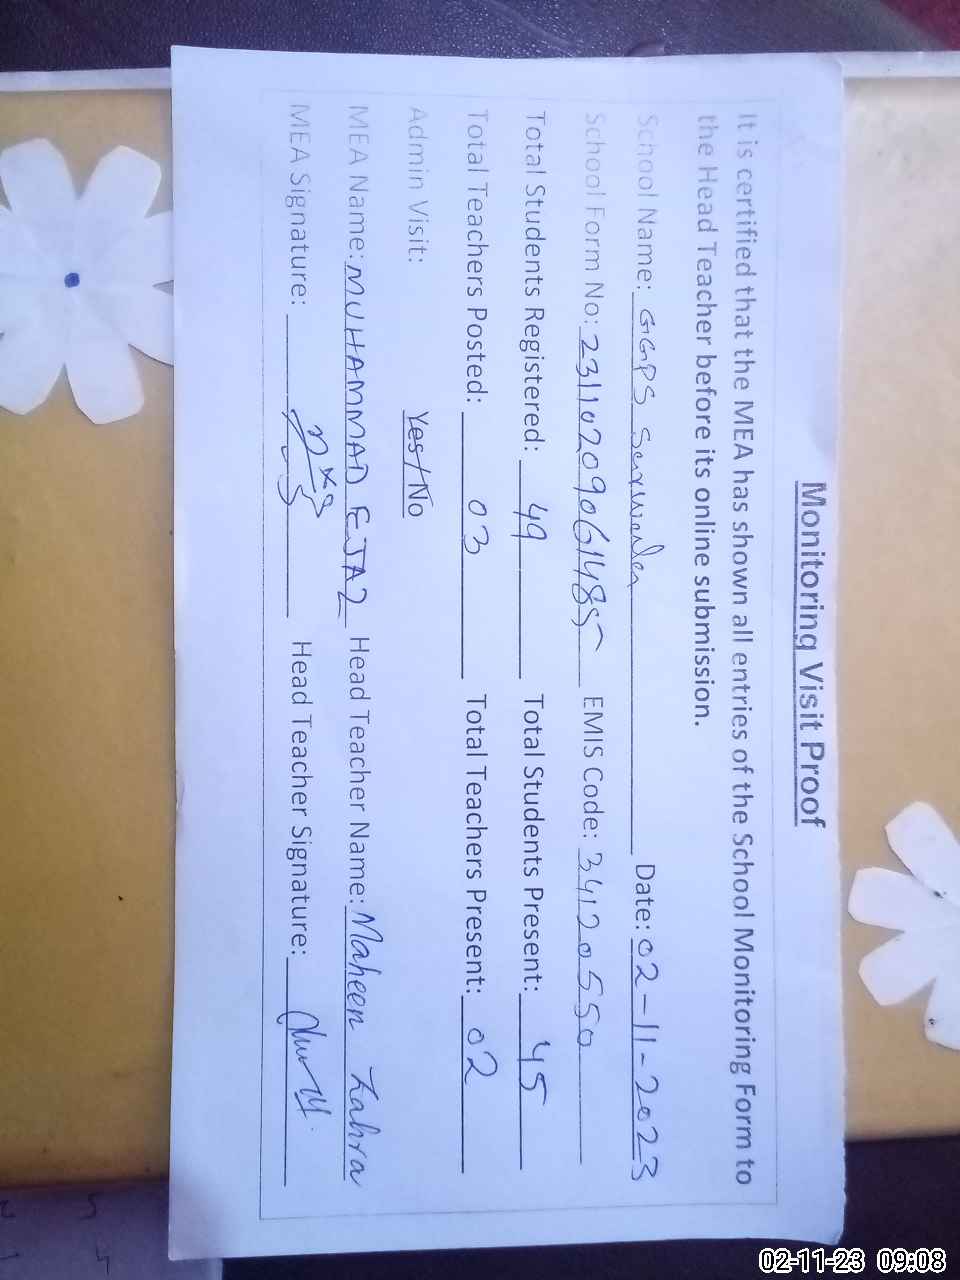 Monitoring Visit Proof
It is certified that the MEA has shown all entries of the School Monitoring Form to
the Head Teacher before its online submission.
School Name: GGPS Date: 02-11-2023
School Form No: 23110209061485 EMIS Code: 34120550
Total Students Registered: 49 Total Students Present: 45
Total Teachers Posted: 03 Total Teachers Present: 02
Admin Visit: Yes/No
MEA Name: MUHAMMAD EJAZ Head Teacher Name: Maheen Zahra
MEA Signature: Head Teacher Signature:
02-11-23 09:08